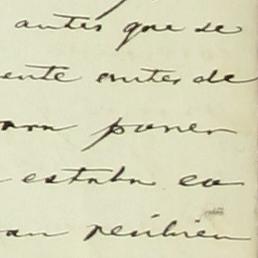 antes que se
ente antes de
ara poner
estaba en
an recibien